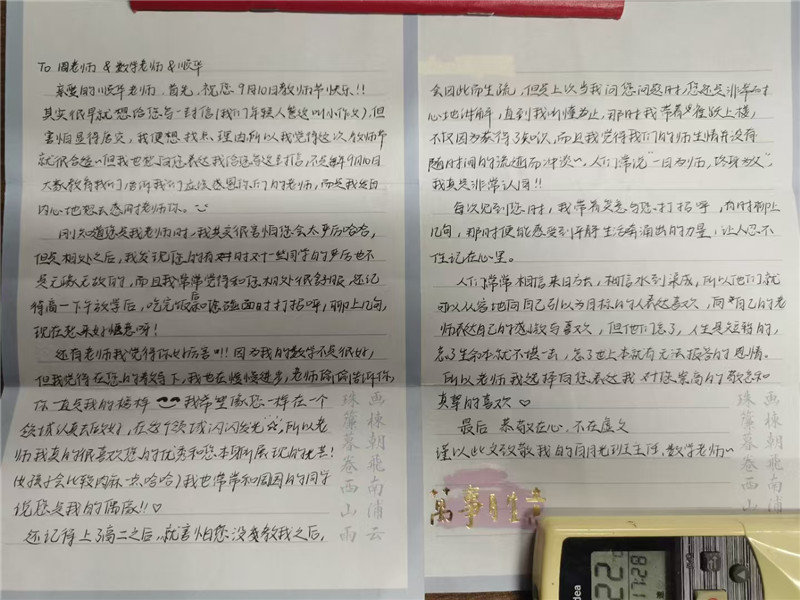 To 周老师 & 数学老师 & 顺华
亲爱的顺华老师,首先,祝您9月10日教师节快乐!!
其实很早就想给您写一封信(我们年轻人管这叫小作文),但
害怕显得唐突,我便想找点理由所以我觉得这次教师节
就很合适~但我也想向您表达我给您写这封信,不是每年9月10日
大家教育我们告诉我们应该感恩你们的老师,而是我发自
内心地想去感谢老师你。
刚知道您是我老师时,我其实很害怕您会太严厉哈哈,
但是相处之后,我发现您的有时对一些同学的严厉也不
是无缘无故的,而且我常常觉得和您相处很舒服,还记
得高一下午放学后,吃完饭后和您碰面时打招呼,聊上几句,
现在想来好惬意呀!
还有老师我觉得你好厉害叫!因为我的数学不是很好,
但我觉得在您的教导下,我也在慢慢进步,老师偷偷告诉你,
你一直是我的榜样 我希望像您一样在一个
领域认真去做好,在这个领域闪闪发光 所以老
师我真的很喜欢您的优秀和您本身所展现的
女孩子会比较肉麻一点哈哈)我也常常和周围的同学
说您是我的偶像!!♡
还记得上了高二之后,就害怕您没教我之后,
珠簾暮卷西山雨
画棟朝飛南浦云
会因此而生疏,但是上次当我问您问题时,您还是非常耐
心地讲解,直到我听懂为止,那时我带着雀跃上楼,
不仅因为获得了知识,而且我觉得我们的师生情并没有
随时间的流逝而冲淡~,人们常说“一日为师,终身为父”,
我真是非常认同!!
每次见到您时,我带着笑意与您打招呼,有时聊上
几句,那时便能感受到平静生活中涌出的力量,让人忍不
住记在心里。
人们常常相信来日方长,相信水到渠成,所以他们就
可以从容地向自己引以为目标的人表达喜欢,向自己的老
师表达自己的感激与喜欢,但他们忘了,人生是短暂的,
忘了生命本就不堪一击,忘了世上本就有无法报答的恩情。
所以老师我选择向您表达我对您崇高的敬意和
真挚的喜欢♡
最后 恭敬在心,不在虚文
谨以此文致敬我的周周班主任,数学老师~
珠簾暮卷西山
画棟朝飛南浦
萬事
22
17:28
idea